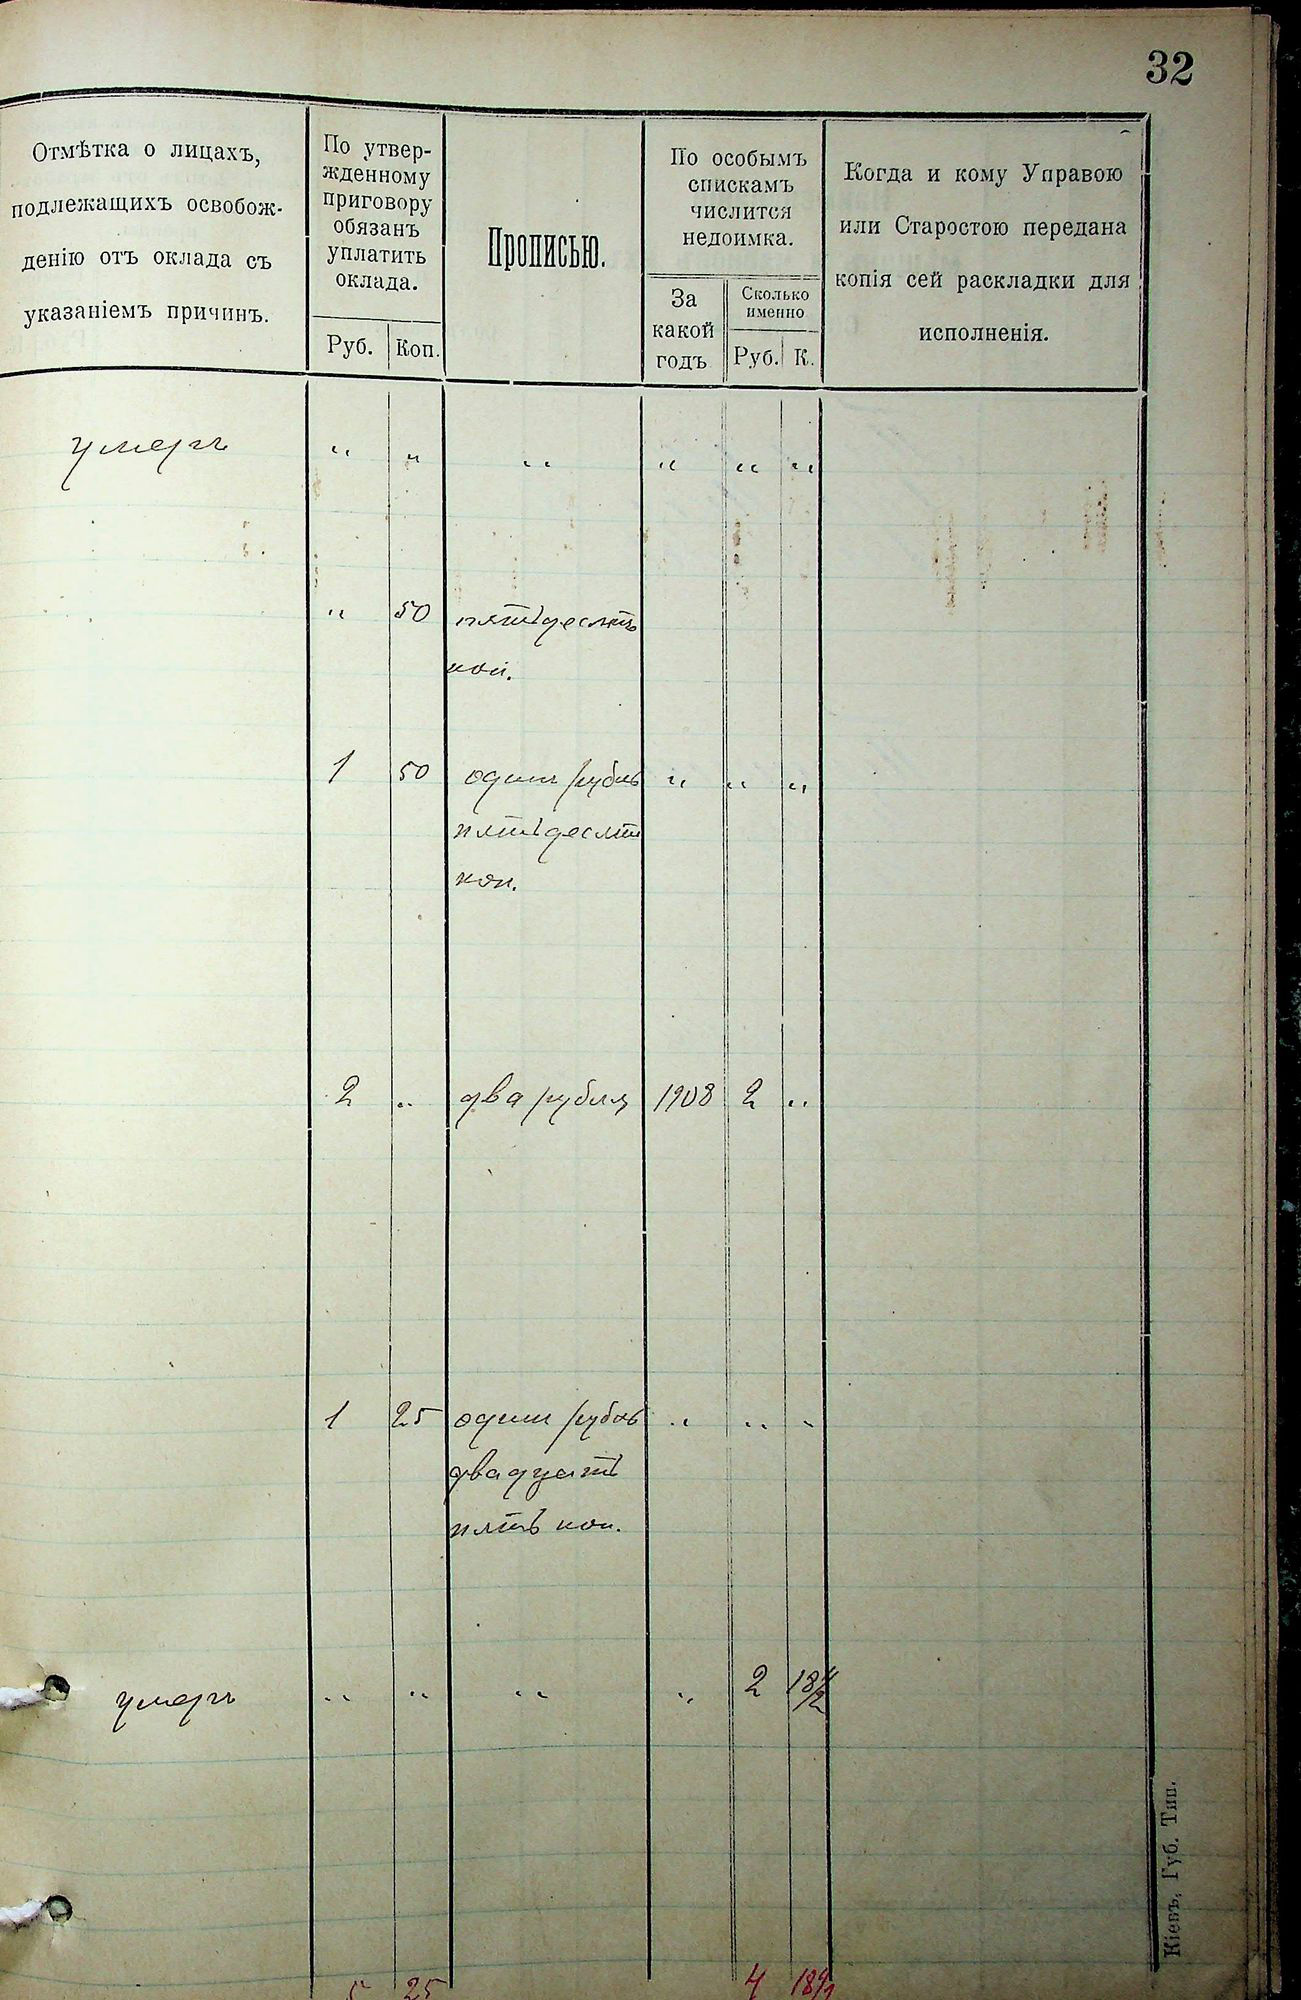 32
Отмѣтка о лицахъ,
подлежащихъ освобож-
денію отъ оклада съ
указаніемъ причинъ.
По утвер-
жденному
приговору
обязанъ
уплатить
оклада.
Руб. Коп.
Прописью.
По особымъ
спискамъ
числится
недоимка.
За
какой
годъ
Сколько
именно
Руб. К.
Когда и кому Управою
или Старостою передана
копія сей раскладки для
исполненія.
умеръ " " " " " "
" 50 пятьдесятъ
коп.
1 50 одинъ рубль " " "
пятьдесятъ
коп.
2 " два рубля 1908 2 "
1 25 одинъ рубль " " "
двадцать
пять коп.
умеръ " " " " 2
5 25 4
Кіевъ, Губ. Тип.